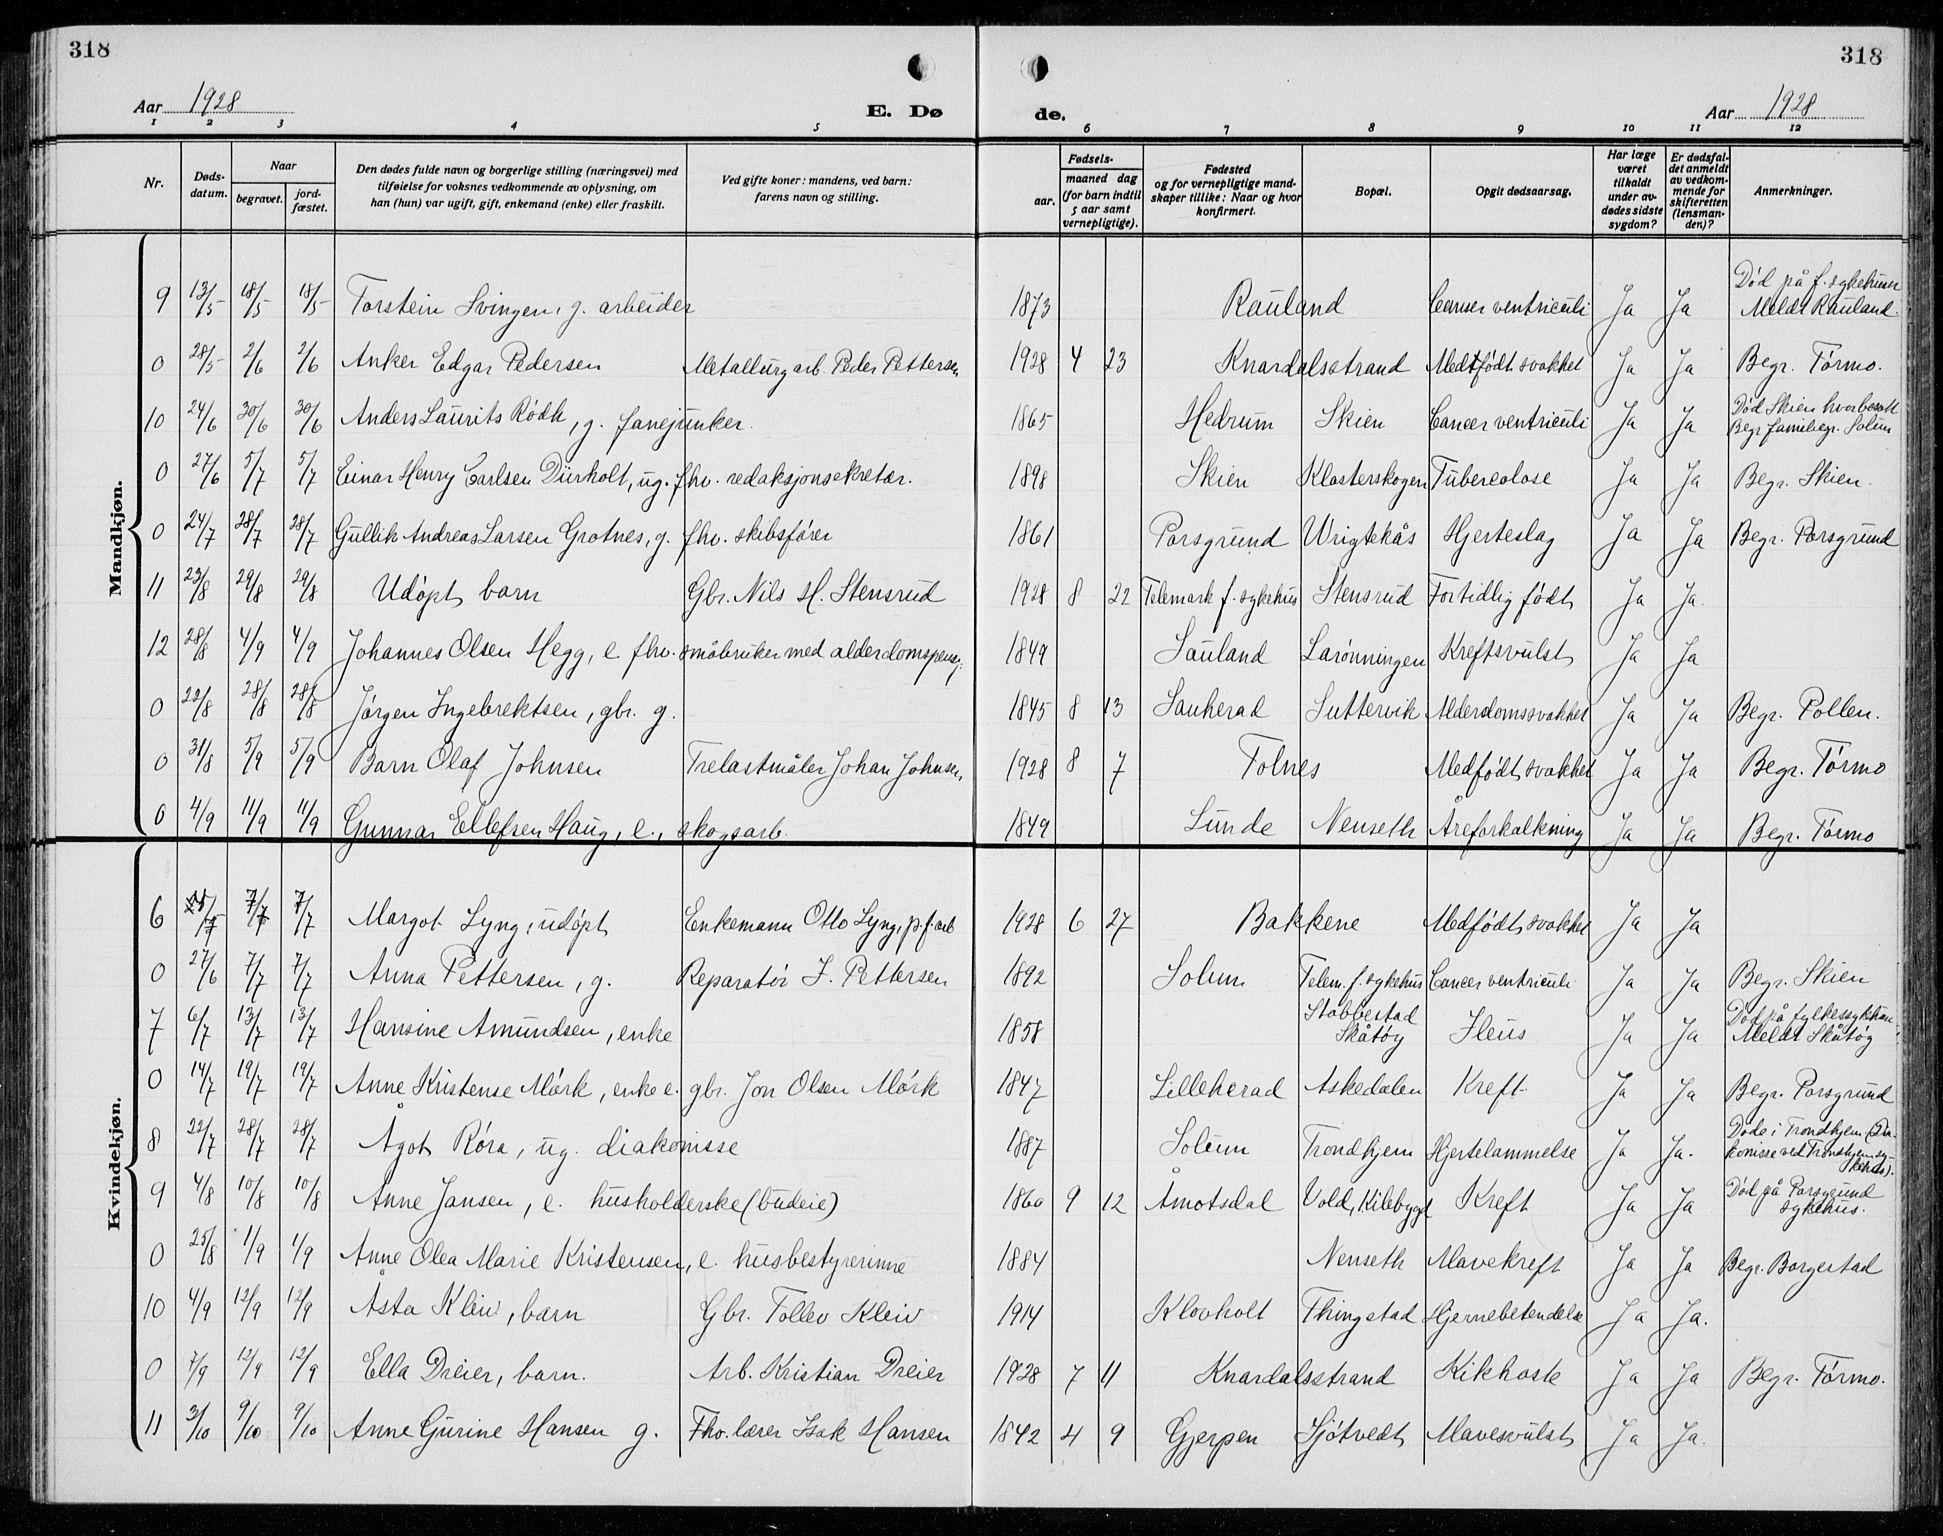 318
318
Aar 1928
E. Dø
de.
Aar 1928
1 2 3 4 5
6 7 8 9 10 11 12
Nr.
Døds-
datum.
Naar
begravet.
jord-
fæstet.
Den dødes fulde navn og borgerlige stilling (næringsvei) med
tilføielse for voksnes vedkommende av oplysning, om
han (hun) var ugift, gift, enkemand (enke) eller fraskilt.
Ved gifte koner: mandens, ved barn:
farens navn og stilling.
Fødsels-
aar.
maaned dag
(for barn indtil
5 aar samt
vernepligtige).
Fødested
og for vernepligtige mand-
skaper tillike: Naar og hvor
konfirmert.
Bopæl.
Opgit dødsaarsag.
Har læge
været
tilkaldt
under av-
dødes sidste
sygdom?
Er dødsfal-
det anmeldt
av vedkom-
mende for
skifteretten
(lensman-
den)?
Anmerkninger.
Mandkjøn.
9 13/5 18/5 18/5 Torstein Svingen, g. arbeider 1873 Rauland Cancer ventriculi Ja Ja Død på f. sykehuset
Meldt Rauland.
0 28/5 2/6 2/6 Anker Edgar Pedersen Metallurg arb. Peder Pettersen 1928 4 23 Knardalsstrand Medfødt svakhet Ja Ja Begr. Tørmo.
10 24/6 30/6 30/6 Anders Laurits Rødh, g. fanejunker. 1865 Hedrum Skien Cancer ventriculi Ja Ja Død Skien hvor bosatt
Begr familiegr. Solum
0 27/6 5/7 5/7 Einar Henry Carlsen Dürholt, ug. fhv. redaksjonsekretær. 1898 Skien Klosterskogen Tuberculose Ja Ja Begr. Skien.
0 24/7 28/7 28/7 Gullik Andreas Larsen Grotnes, g. fhv. skibsfører 1861 Porsgrund Wrigtekås Hjerteslag Ja Ja Begr. Porsgrund
11 23/8 29/8 29/8 Udøpt barn Gbr. Nils H. Stensrud 1928 8 22 Telemark f. sykehus Stensrud For tidlig født Ja Ja.
12 28/8 4/9 4/9 Johannes Olsen Hegg, e. fhv. småbruker med alderdomspens. 1849 Sauland Larønningen Kreftsvulst Ja Ja
0 22/8 28/8 28/8 Jørgen Ingebrektsen, gbr. g. 1845 8 13 Sauherad Suttervik Alderdomssvakhet Ja Ja Begr. Pollen.
0 31/8 5/9 5/9 Barn Olaf Johnsen Trelastmåler Johan Johnsen, 1928 8 7 Tolnes Medfødt svakhet Ja Ja Begr. Tørmo
0 4/9 11/9 11/9 Gunnar Ellefsen Haug, e., skogsarb. 1849 Lunde Nenseth Åreforkalkning Ja Ja Begr. Tørmo
Kvindekjøn.
6 7/7 7/7 Margot Lyng, udøpt Enkemann Otto Lyng, p.f.arb 1928 6 27 Bakkene Medfødt svakhet Ja Ja
0 27/6 7/7 7/7 Anna Pettersen, g. Reparatør J. Pettersen 1892 Solum Telem. f. sykehus Cancer ventriculi Ja Ja Begr. Skien
7 6/7 13/7 13/7 Hansine Amundsen, enke 1858 Stabbestad
Skåtøy Ileus Ja Ja Død på fylkessykehus
Meldt Skåtøy
0 14/7 19/7 19/7 Anne Kristense Mørk, enke e. gbr. Jon Olsen Mørk 1847 Lilleherad Askedalen Kreft Ja Ja Begr. Porsgrund
8 22/7 28/7 28/7 Ågot Røra, ug. diakonisse 1887 Solum Trondhjem Hjertelammelse Ja Ja. Døde i Trondhjem (Dia-
konisse ved Trondhjem sy-
kehus).
9 4/8 10/8 10/8 Anne Jansen, e. husholderske (budeie) 1860 9 12 Åmotsdal Vold, Kilebygd Kreft Ja Ja Død på Porsgrund
sykehus.
0 25/8 1/9 1/9 Anne Olea Marie Kristensen, e. husbestyrerinne 1884 Nenseth Mavekreft Ja Ja Begr. Borgestad
10 4/9 12/9 12/9 Åsta Kleiv, barn Gbr. Tollev Kleiv 1914 Klovholt Thingstad Hjernebetendelse Ja Ja.
0 7/9 12/9 12/9 Ella Dreier, barn. Arb. Kristian Dreier 1928 7 11 Knardalsstrand Kikhoste Ja Ja Begr. Tørmo.
11 3/10 9/10 9/10 Anne Gurine Hansen g. Fhv. lærer Isak Hansen 1842 4 9 Gjerpen Sjøtvedt Mavesvulst Ja Ja.